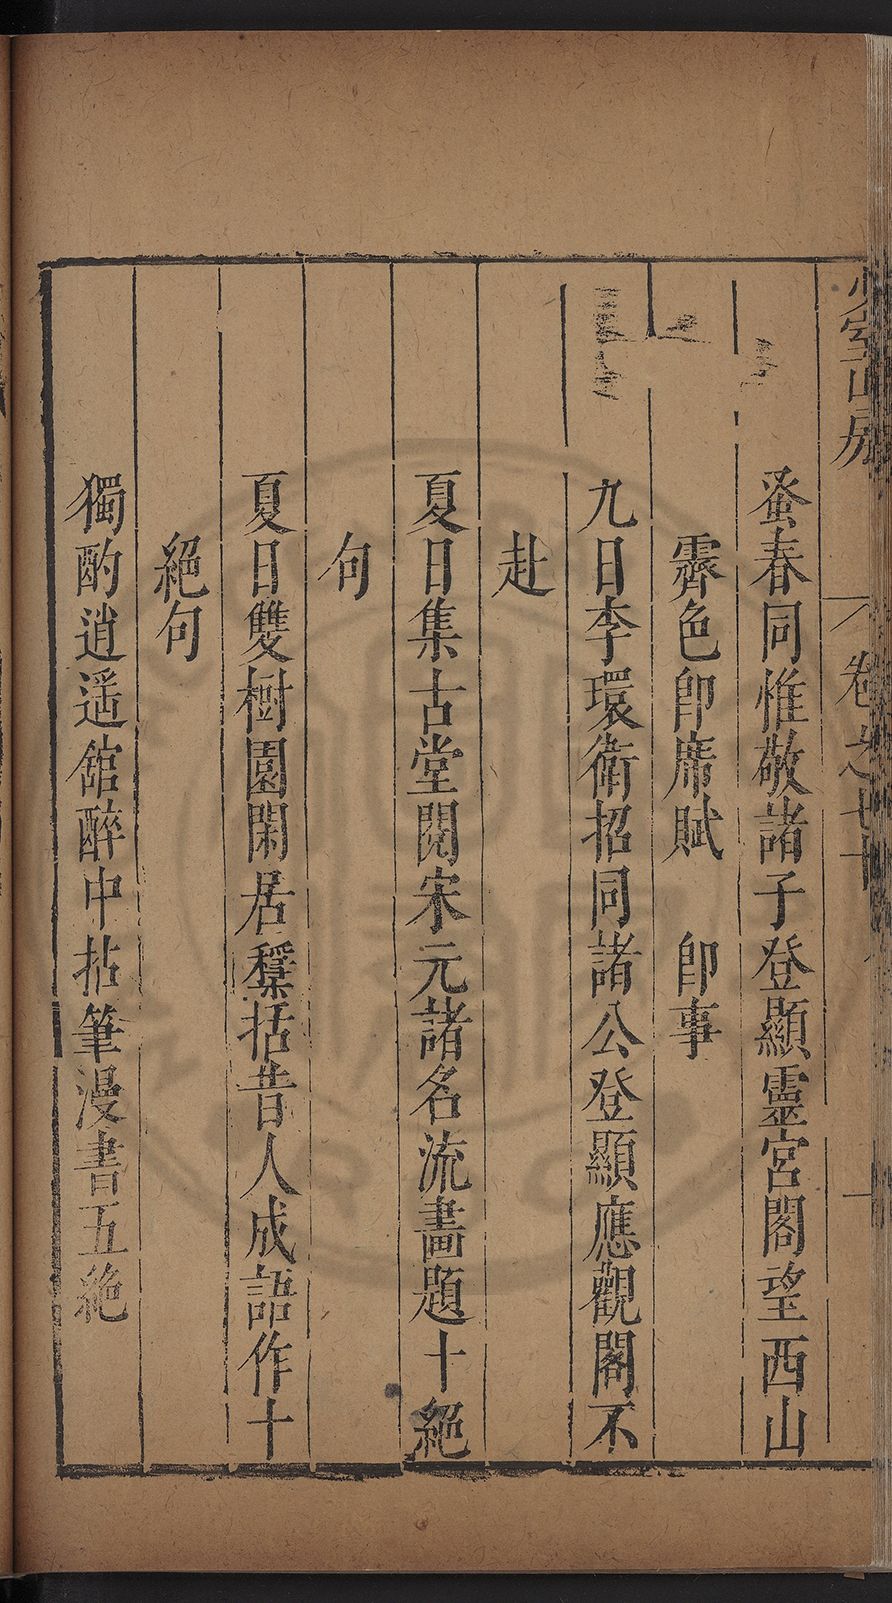 少室山房 卷之七十
蚤春同惟敬諸子登顯靈宮閣望西山
霽色卽席賦　卽事
九日李環衛招同諸公登顯應觀閣不
赴
夏日集古堂閱宋元諸名流畫題十絕
句
夏日雙樹園閑居檃括昔人成語作十
絕句
獨酌逍遥舘醉中拈筆漫書五絶